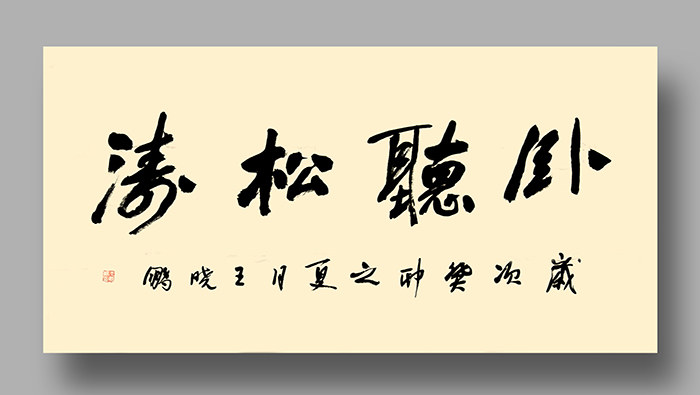 卧聽松濤
歲次癸卯之夏月王晓鵬